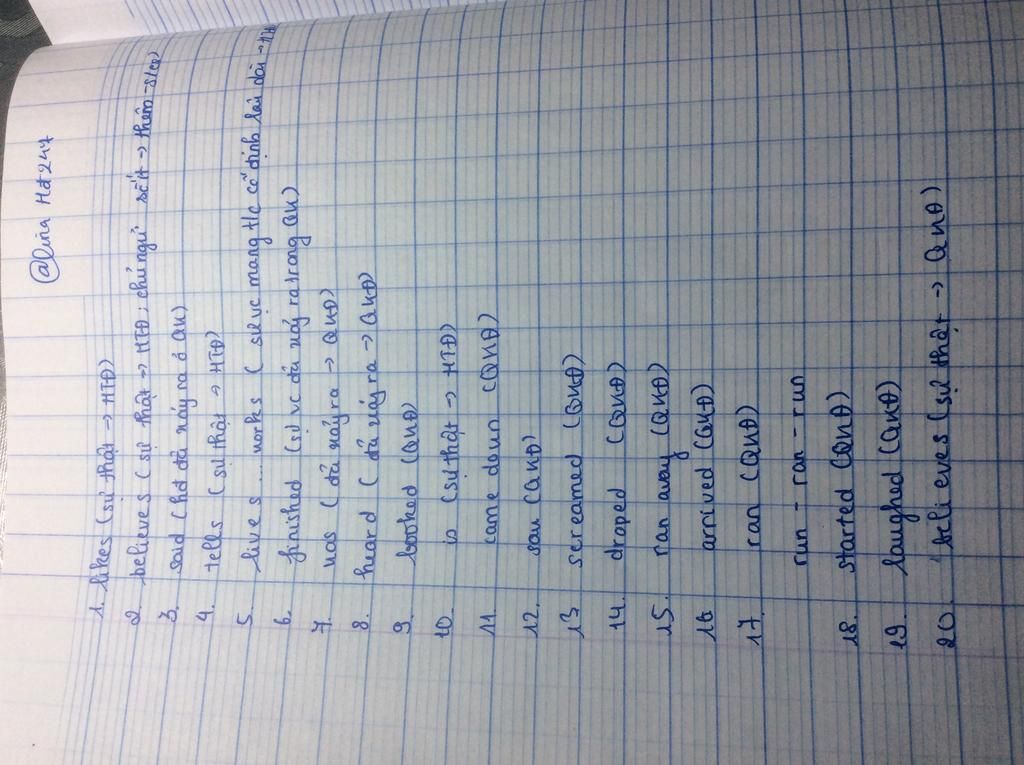 @lina Hd247
1. likes (sự thật → HTĐ)
2. believes (sự thật → HTĐ; chủ ngữ số ít → thêm -s/es)
3. said (hđ đã xảy ra ở QK)
4. tells (sự thật → HTĐ)
5. lives ... works (sự vc mang t/c cố định lâu dài → HTĐ
6. finished (sự vc đã xảy ra trong QK)
7. was (đã xảy ra → QKĐ)
8. heard (đã xảy ra → QKĐ)
9. looked (QKĐ)
10. is (sự thật → HTĐ)
11. came down (QKĐ)
12. saw (QKĐ)
13 screamed (QKĐ)
14. droped (QKĐ)
15. ran away (QKĐ)
16 arrived (QKĐ)
17. ran (QKĐ)
run - ran - run
18. started (QKĐ)
19. laughed (QKĐ)
20. believes (sự thật → QKĐ)